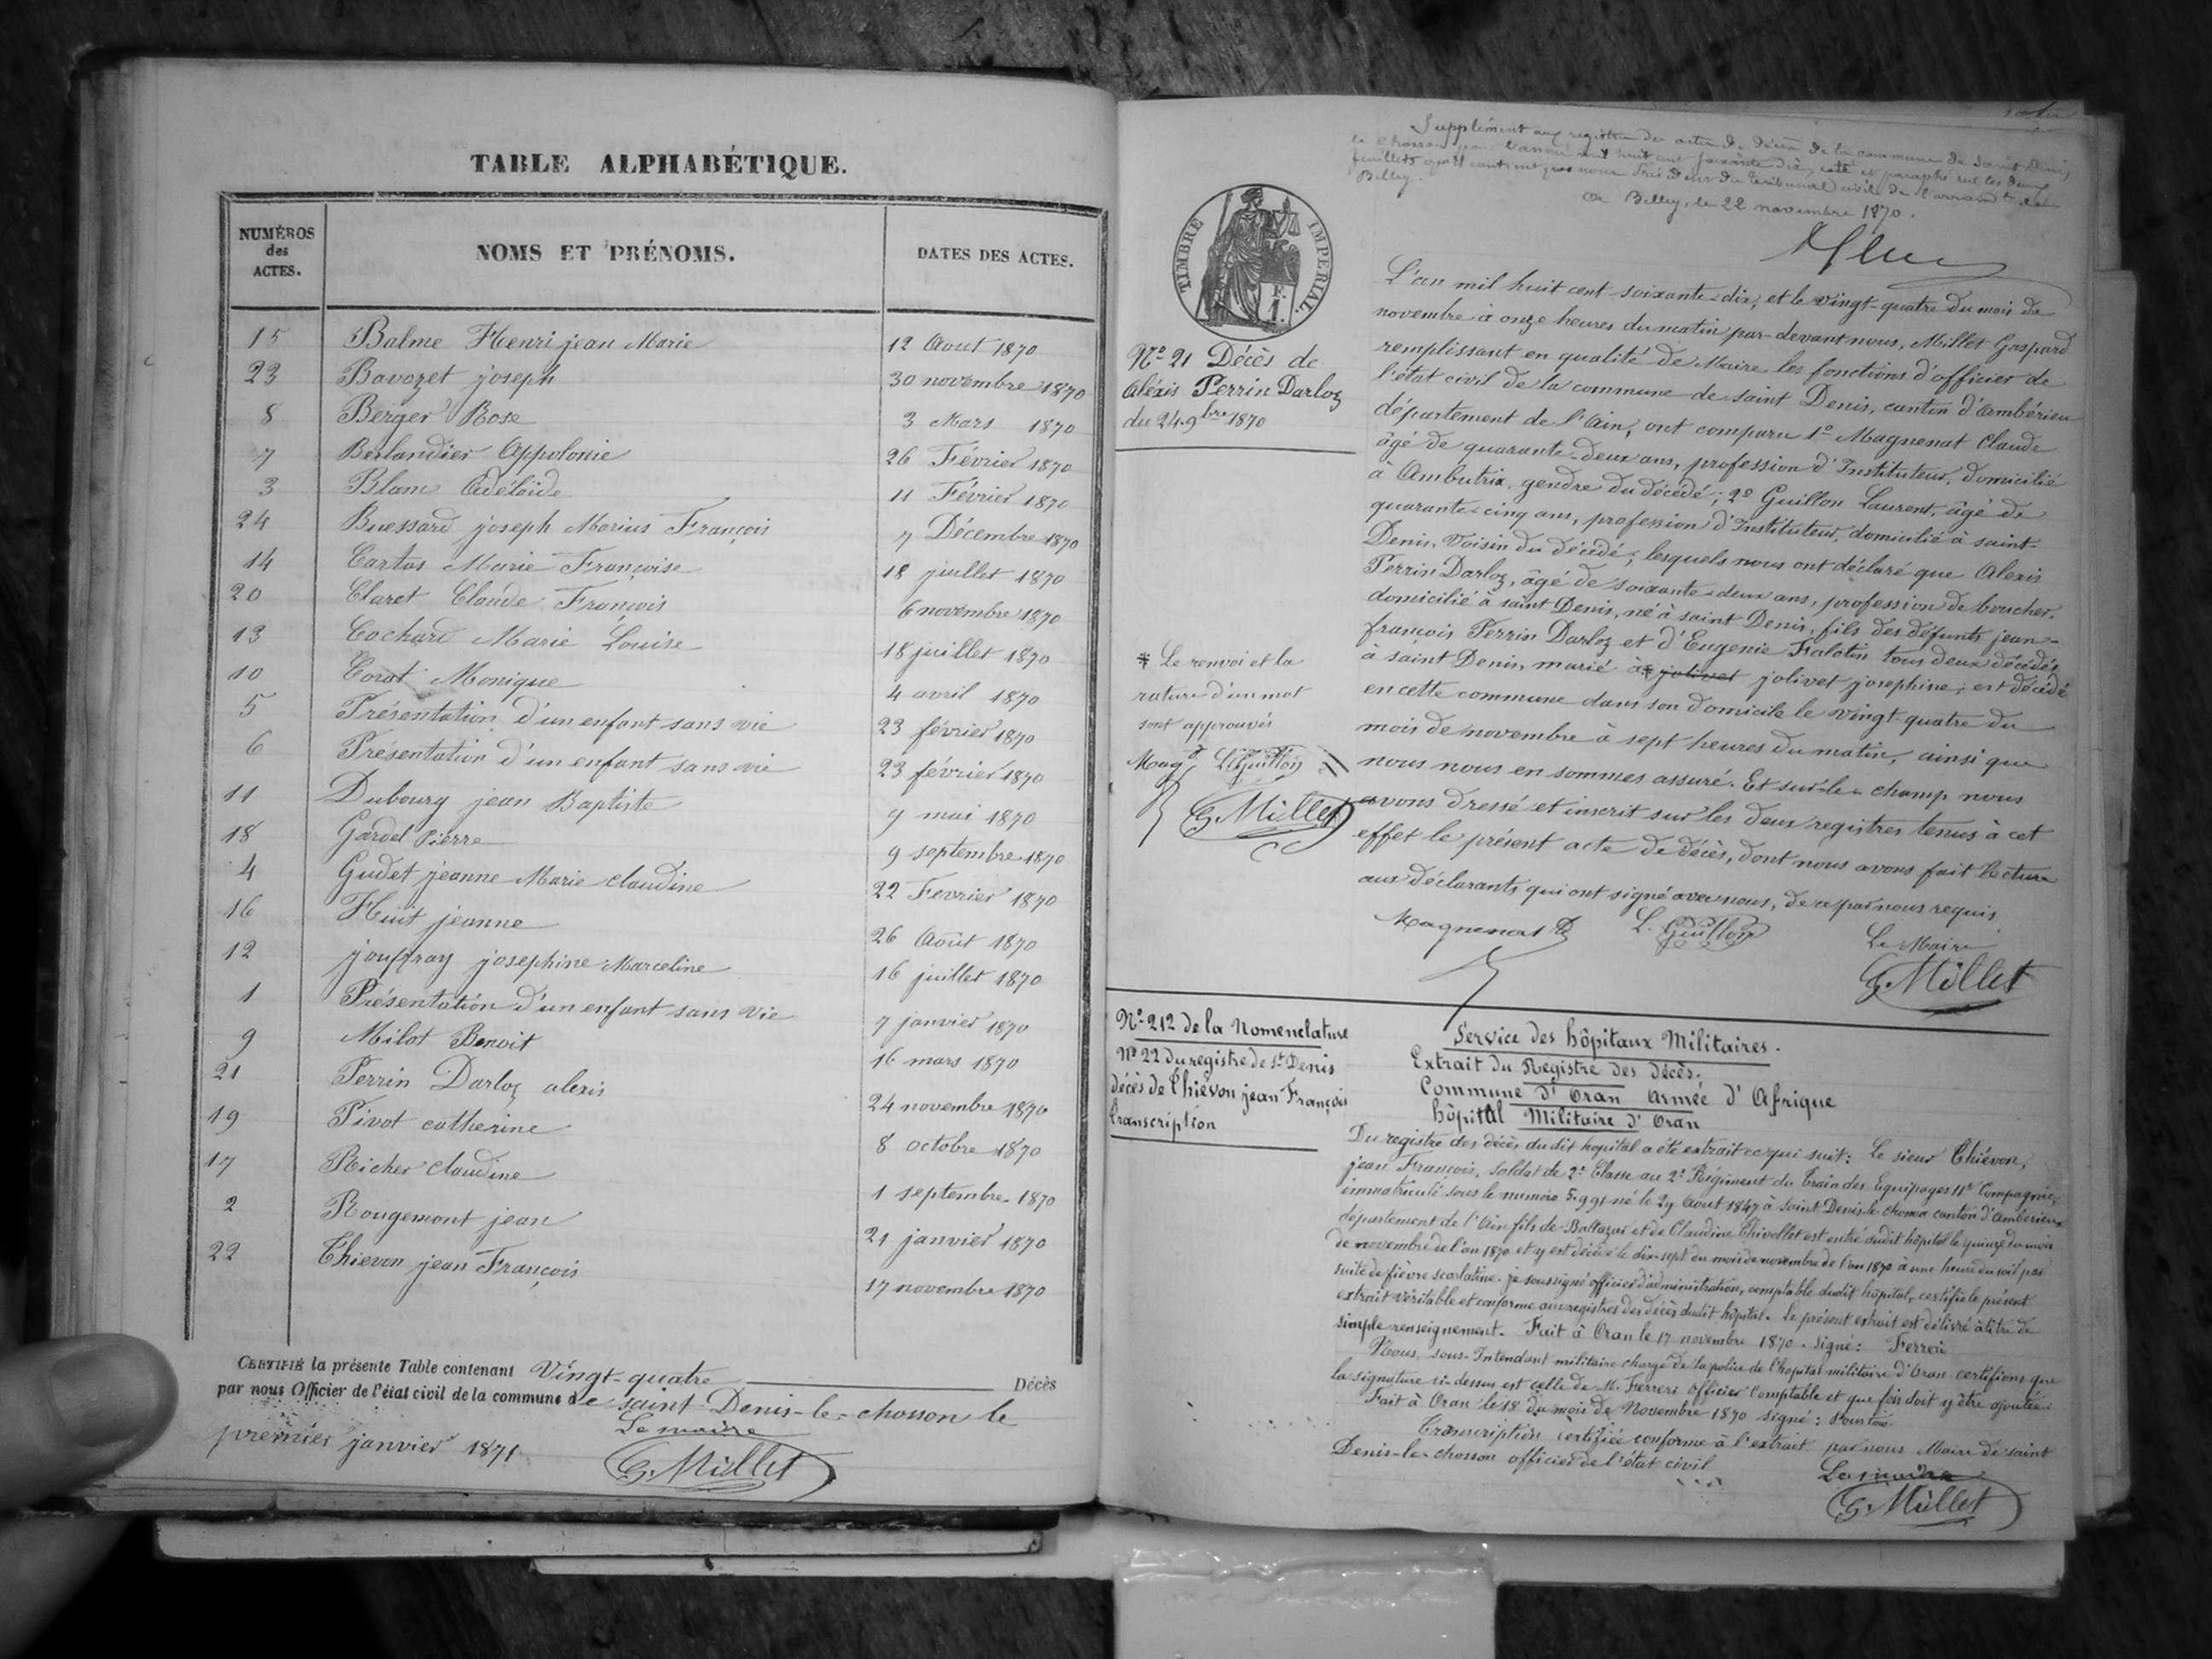 TABLE ALPHABÉTIQUE.
NUMÉROS des ACTES.
NOMS ET PRÉNOMS.
DATES DES ACTES.
15 Balme Henri jean Marie 12 Aout 1870
23 Bavozet joseph 30 novembre 1870
8 Berger Rose 3 Mars 1870
7 Berlandier Appolonie 26 Février 1870
3 Blanc Adélaide 11 Février 1870
24 Buessard joseph Marius François 7 Décembre 1870
14 Cartas Marie Françoise 18 juillet 1870
20 Claret Claude François 6 novembre 1870
13 Cochard Marie Louise 18 juillet 1870
10 Corat Monique 4 avril 1870
5 Présentation d'un enfant sans vie 23 février 1870
6 Présentation d'un enfant sans vie 23 février 1870
11 Dubourg jean Baptiste 9 mai 1870
18 Gardel Pierre 9 septembre 1870
4 Gudet jeanne Marie claudine 22 Fevrier 1870
16 Huit jeanne 26 Août 1870
12 jouffray josephine Marceline 16 juillet 1870
1 Présentation d'un enfant sans vie 7 janvier 1870
9 Milot Benoit 16 mars 1870
21 Perrin Darloz alexis 24 novembre 1870
19 Pivot catherine 8 octobre 1870
17 Richer claudine 1 septembre 1870
2 Rougemont jean 21 janvier 1870
22 Thievon jean François 17 novembre 1870
CERTIFIÉ la présente Table contenant Vingt-quatre Décès
par nous Officier de l'état civil de la commune de saint Denis-le-chosson le
premier janvier 1871
Le maire
G. Millet
Supplément aux registres des actes de décès de la commune de Saint Denis
le Chosson pour l'année mil huit cent soixante dix, coté et paraphé sur les deux
feuillets qu'il contient par nous Président du Tribunal civil de l'arrondt de
Belley.
A Belley, le 22 novembre 1870.
TIMBRE IMPÉRIAL
F.
1.
No 21 Décès de
Aléxis Perrin Darloz
du 24 9bre 1870
L'an mil huit cent soixante-dix, et le vingt-quatre du mois de
novembre à onze heures du matin par-devant nous, Millet Gaspard
remplissant en qualité de Maire les fonctions d'officier de
l'état civil de la commune de saint Denis, canton d'ambérieu
département de l'Ain, ont comparu 1o Magnenat Claude
âgé de quarante-deux ans, profession d'Instituteur, domicilié
à Ambutrix, gendre du décédé; 2o Guillon Laurent, âgé de
quarante-cinq ans, profession d'Instituteur, domicilié à saint-
Denis, Voisin du décédé; lesquels nous ont déclaré que Alexis
Perrin Darloz, âgé de soixante-deux ans, profession de boucher,
domicilié à saint Denis, né à saint Denis, fils des défunts jean-
françois Perrin Darloz et d'Eugenie Falotin tous deux décédés
à saint Denis, marié à* jolivet jolivet josephine, est décédé
en cette commune dans son domicile le vingt-quatre du
mois de novembre à sept heures du matin, ainsi que
nous nous en sommes assuré. Et sur-le-champ nous
avons dressé et inscrit sur les deux registres tenus à cet
effet le présent acte de décès, dont nous avons fait lecture
aux déclarants qui ont signé avec nous, de ce par nous requis
* Le renvoi et la
rature d'un mot
sont approuvés
Magt L. Guillon
G. Millet
Magnenat L. Guillon Le Maire
G. Millet
No 212 de la Nomenclature
No 22 du registre de St Denis
décès de Thiévon jean François
Transcription
Service des hôpitaux Militaires.
Extrait du Registre des décès.
Commune d'Oran Armée d'Afrique
hôpital Militaire d'Oran
Du registre des décès dudit hopital a été extrait ce qui suit: Le sieur Thiévon,
jean François, soldat de 2e Classe au 2e Régiment du Train des Equipages 11e Compagnie,
immatriculé sous le numéro 5.991 né le 29 Aout 1847 à Saint Denis-le-chosson canton d'Ambérieu
département de l'Ain fils de Baltazar et de Claudine Chivollet est entré dudit hôpital le quinze du mois
de novembre de l'an 1870 et y est décédé le dix-sept du mois de novembre de l'an 1870 à une heure du soir par
suite de fièvre scarlatine. je soussigné officier d'administration, comptable dudit hôpital, certifie le présent
extrait véritable et conforme aux registres des décès dudit hôpital. Le présent extrait est délivré à titre de
simple renseignement. Fait à Oran le 17 novembre 1870. Signé: Ferreri
Nous, sous-Intendant militaire chargé de la police de l'hopital militaire d'Oran certifions que
la signature ci-dessus est celle de M. Ferreri officier Comptable et que foi doit y être ajoutée.
Fait à Oran le 18 du mois de Novembre 1870 signé:
Transcription certifiée conforme à l'extrait par nous Maire de saint
Denis-le-chosson officier de l'état civil
Le maire
G. Millet